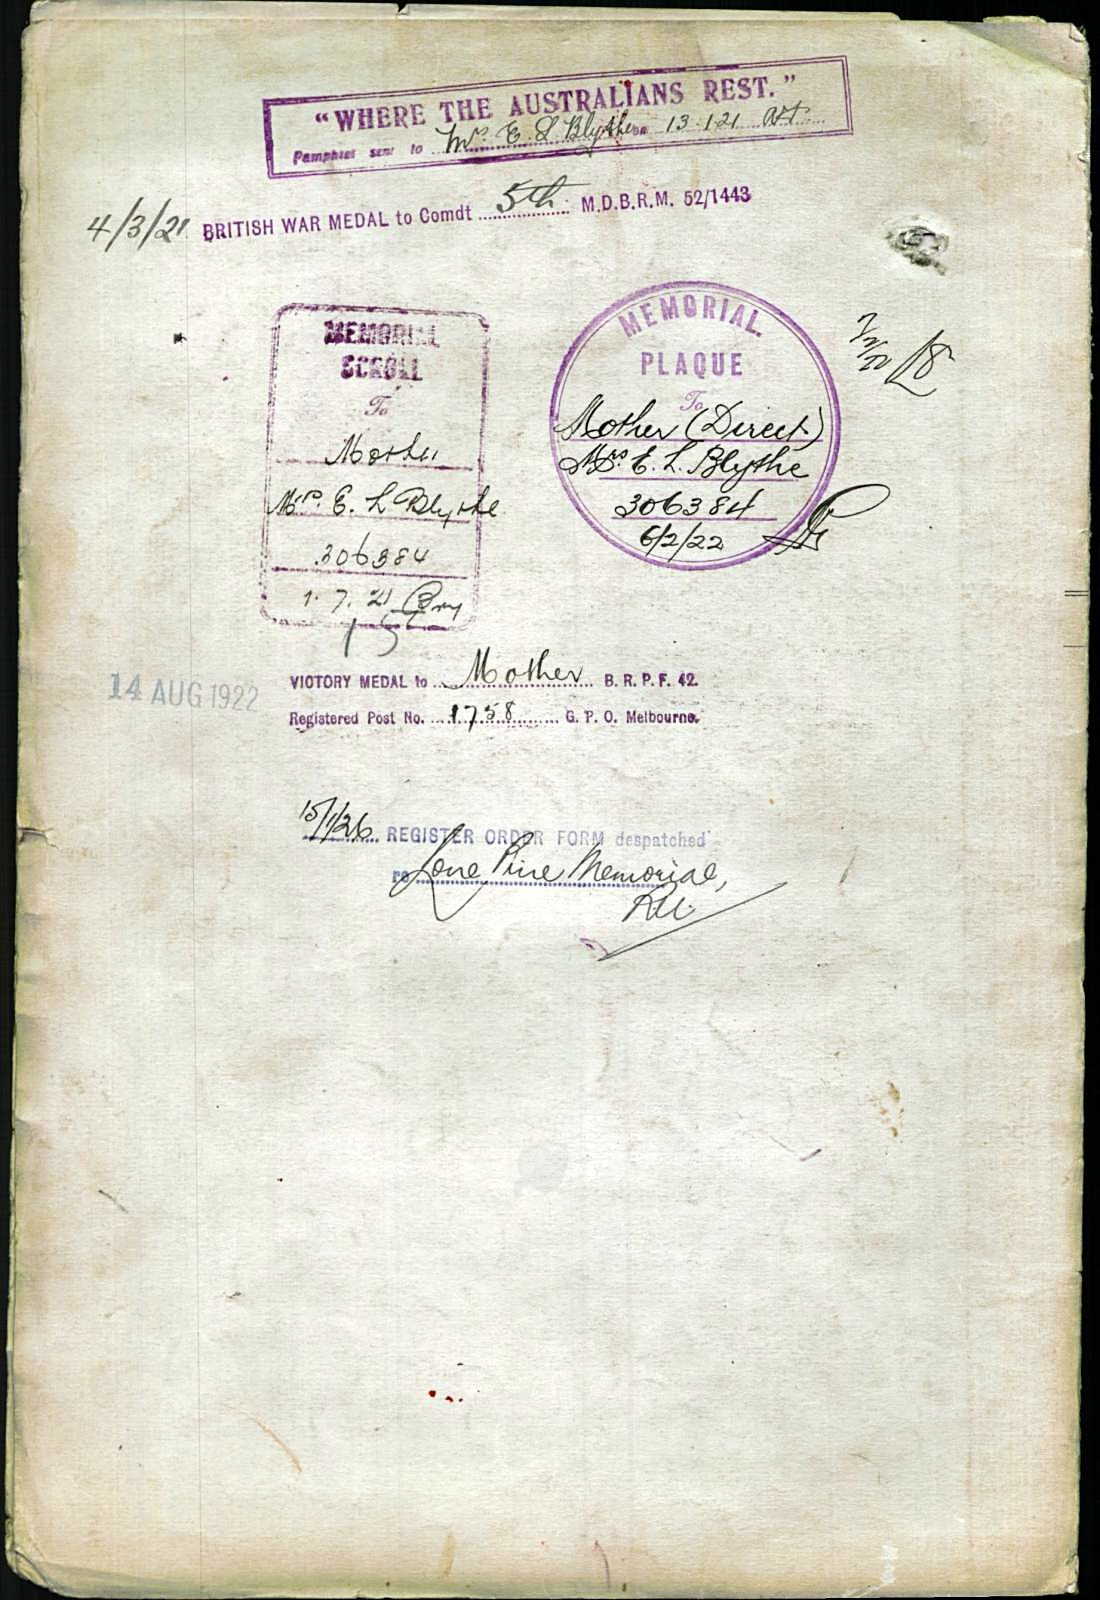 "WHERE THE AUSTRALIANS REST."
Pamphlet sent to Mrs. E. L Blythe on 13.1.21
4/3/21 BRITISH WAR MEDAL to Comdt 5th M.D.B.R.M. 52/1443
MEMORIAL
SCROLL
To
Mother
Mrs. E. L Blythe
306384
1.7.21
MEMORIAL
PLAQUE
To
Mother (Direct)
Mrs E. L. Blythe
306384
6/2/22
VICTORY MEDAL to Mother B. R. P. F. 42.
14 AUG 1922
Registered Post No. 1758 G. P. O. Melbourne.
15/1/26 REGISTER ORDER FORM despatched
re Lone Pine Memorial,